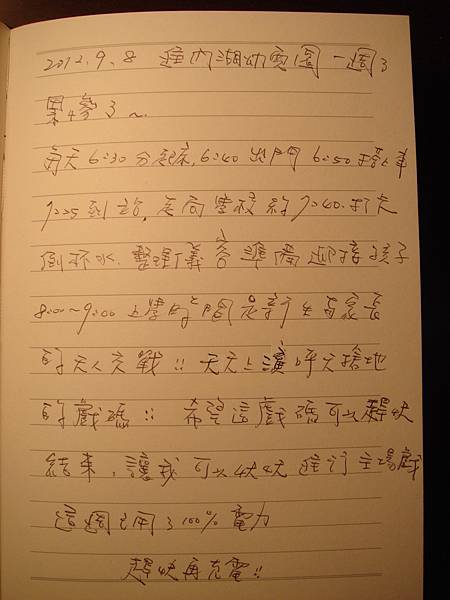 2012.9.8 進內湖幼兒園一週了
累慘了~
每天6:30分起床,6:40出門 6:50搭車
7:25到站,走向學校約7:40.打卡
倒杯水.整理儀容準備迎接孩子
8:00~9:00上學的時間是新生與家長
的天人交戰!!天天上演呼天搶地
的戲碼!! 希望這戲碼可以趕快
結束,讓我可以快快進行主場戲
這週已用了100%電力
趕快再充電!!